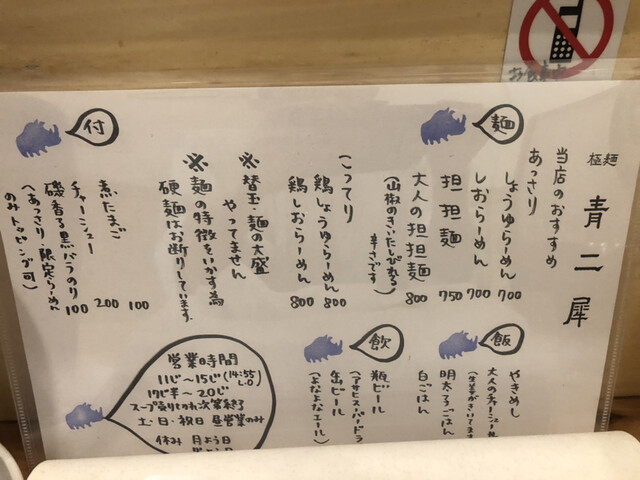 お食事中
極麺 青二犀
当店のおすすめ
麺
あっさり
しょうゆらーめん 700
しおらーめん 700
担担麺 750
大人の担担麺 800
(山椒のきいたしびれる
辛さです)
こってり
鶏しょうゆらーめん 800
鶏しおらーめん 800
※替玉・麺の大盛
やってません
※麺の特徴をいかす為
硬麺はお断りしています。
付
煮たまご 100
チャーシュー 200
磯香る黒バラのり 100
(あっさり・限定らーめん
のみトッピング可)
飯
やきめし
大人のチャーシュー
明太子ごはん
白ごはん
飲
瓶ビール
(アサヒスーパードライ
缶ビール
(よなよなエール)
営業時間
11じ～15じ(14:55 L.O)
17じ半～20じ
スープ売りきれ次第終了
土・日・祝日 昼営業のみ
休み 月よう日